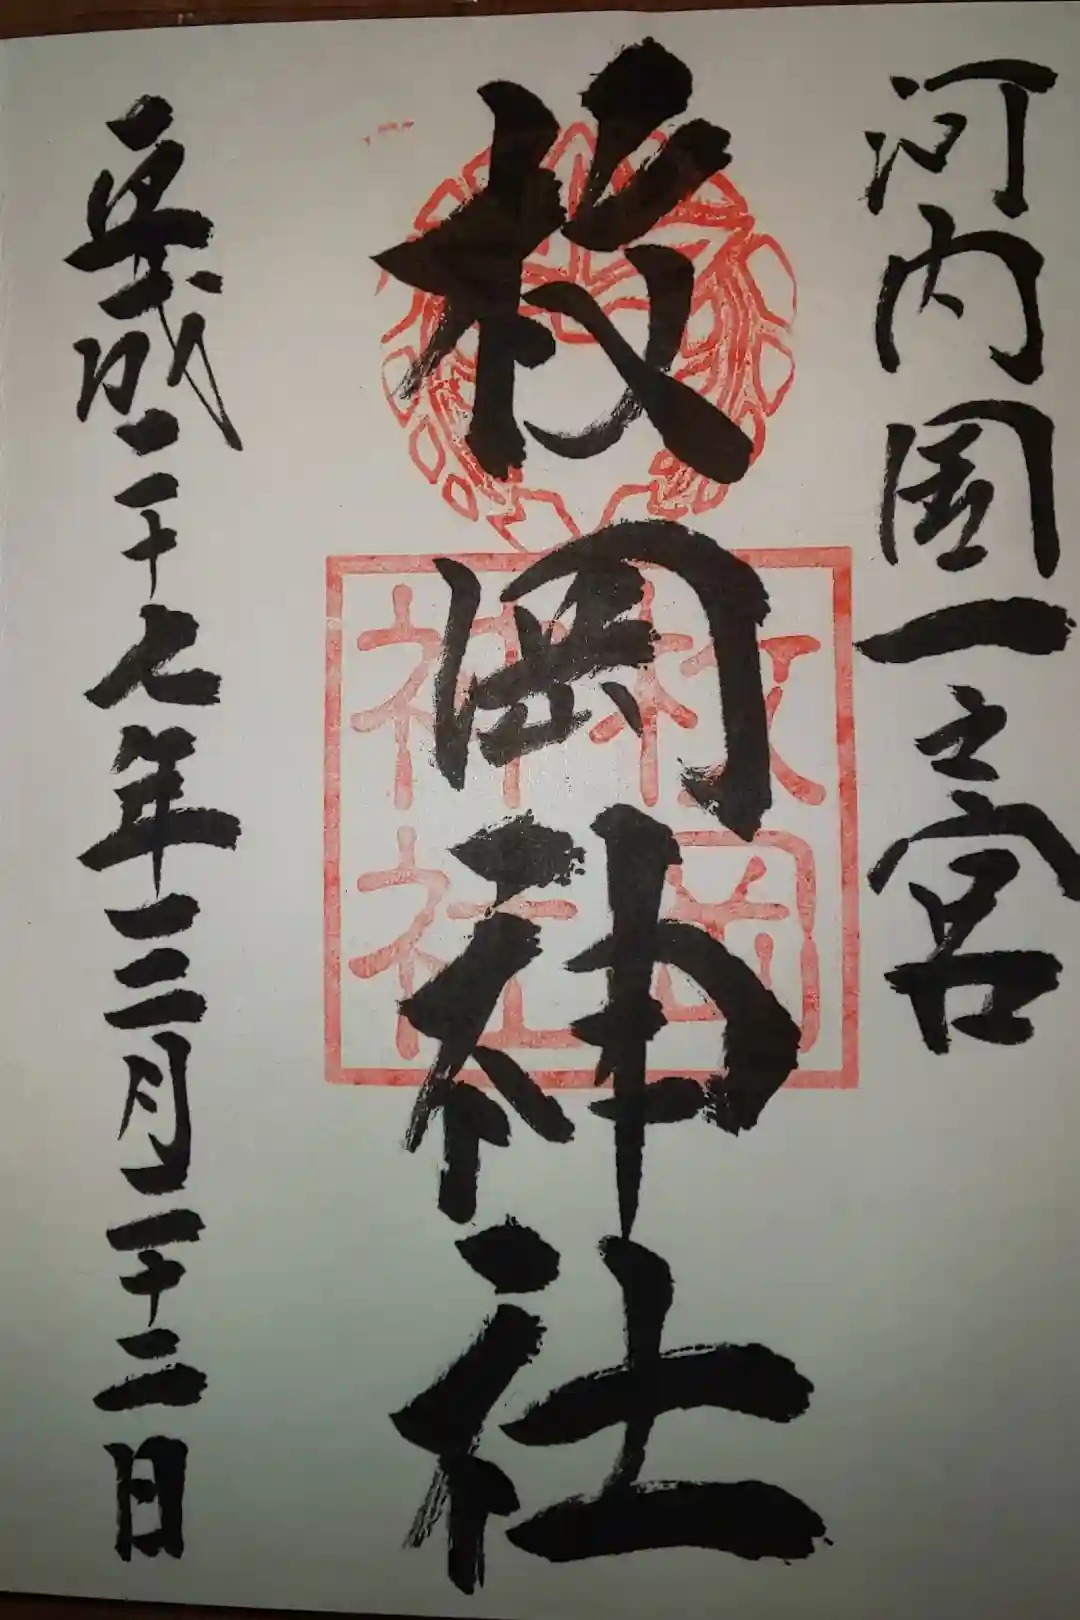 河内國一之宮
枚岡神社
枚岡
神社
平成二十七年三月二十二日